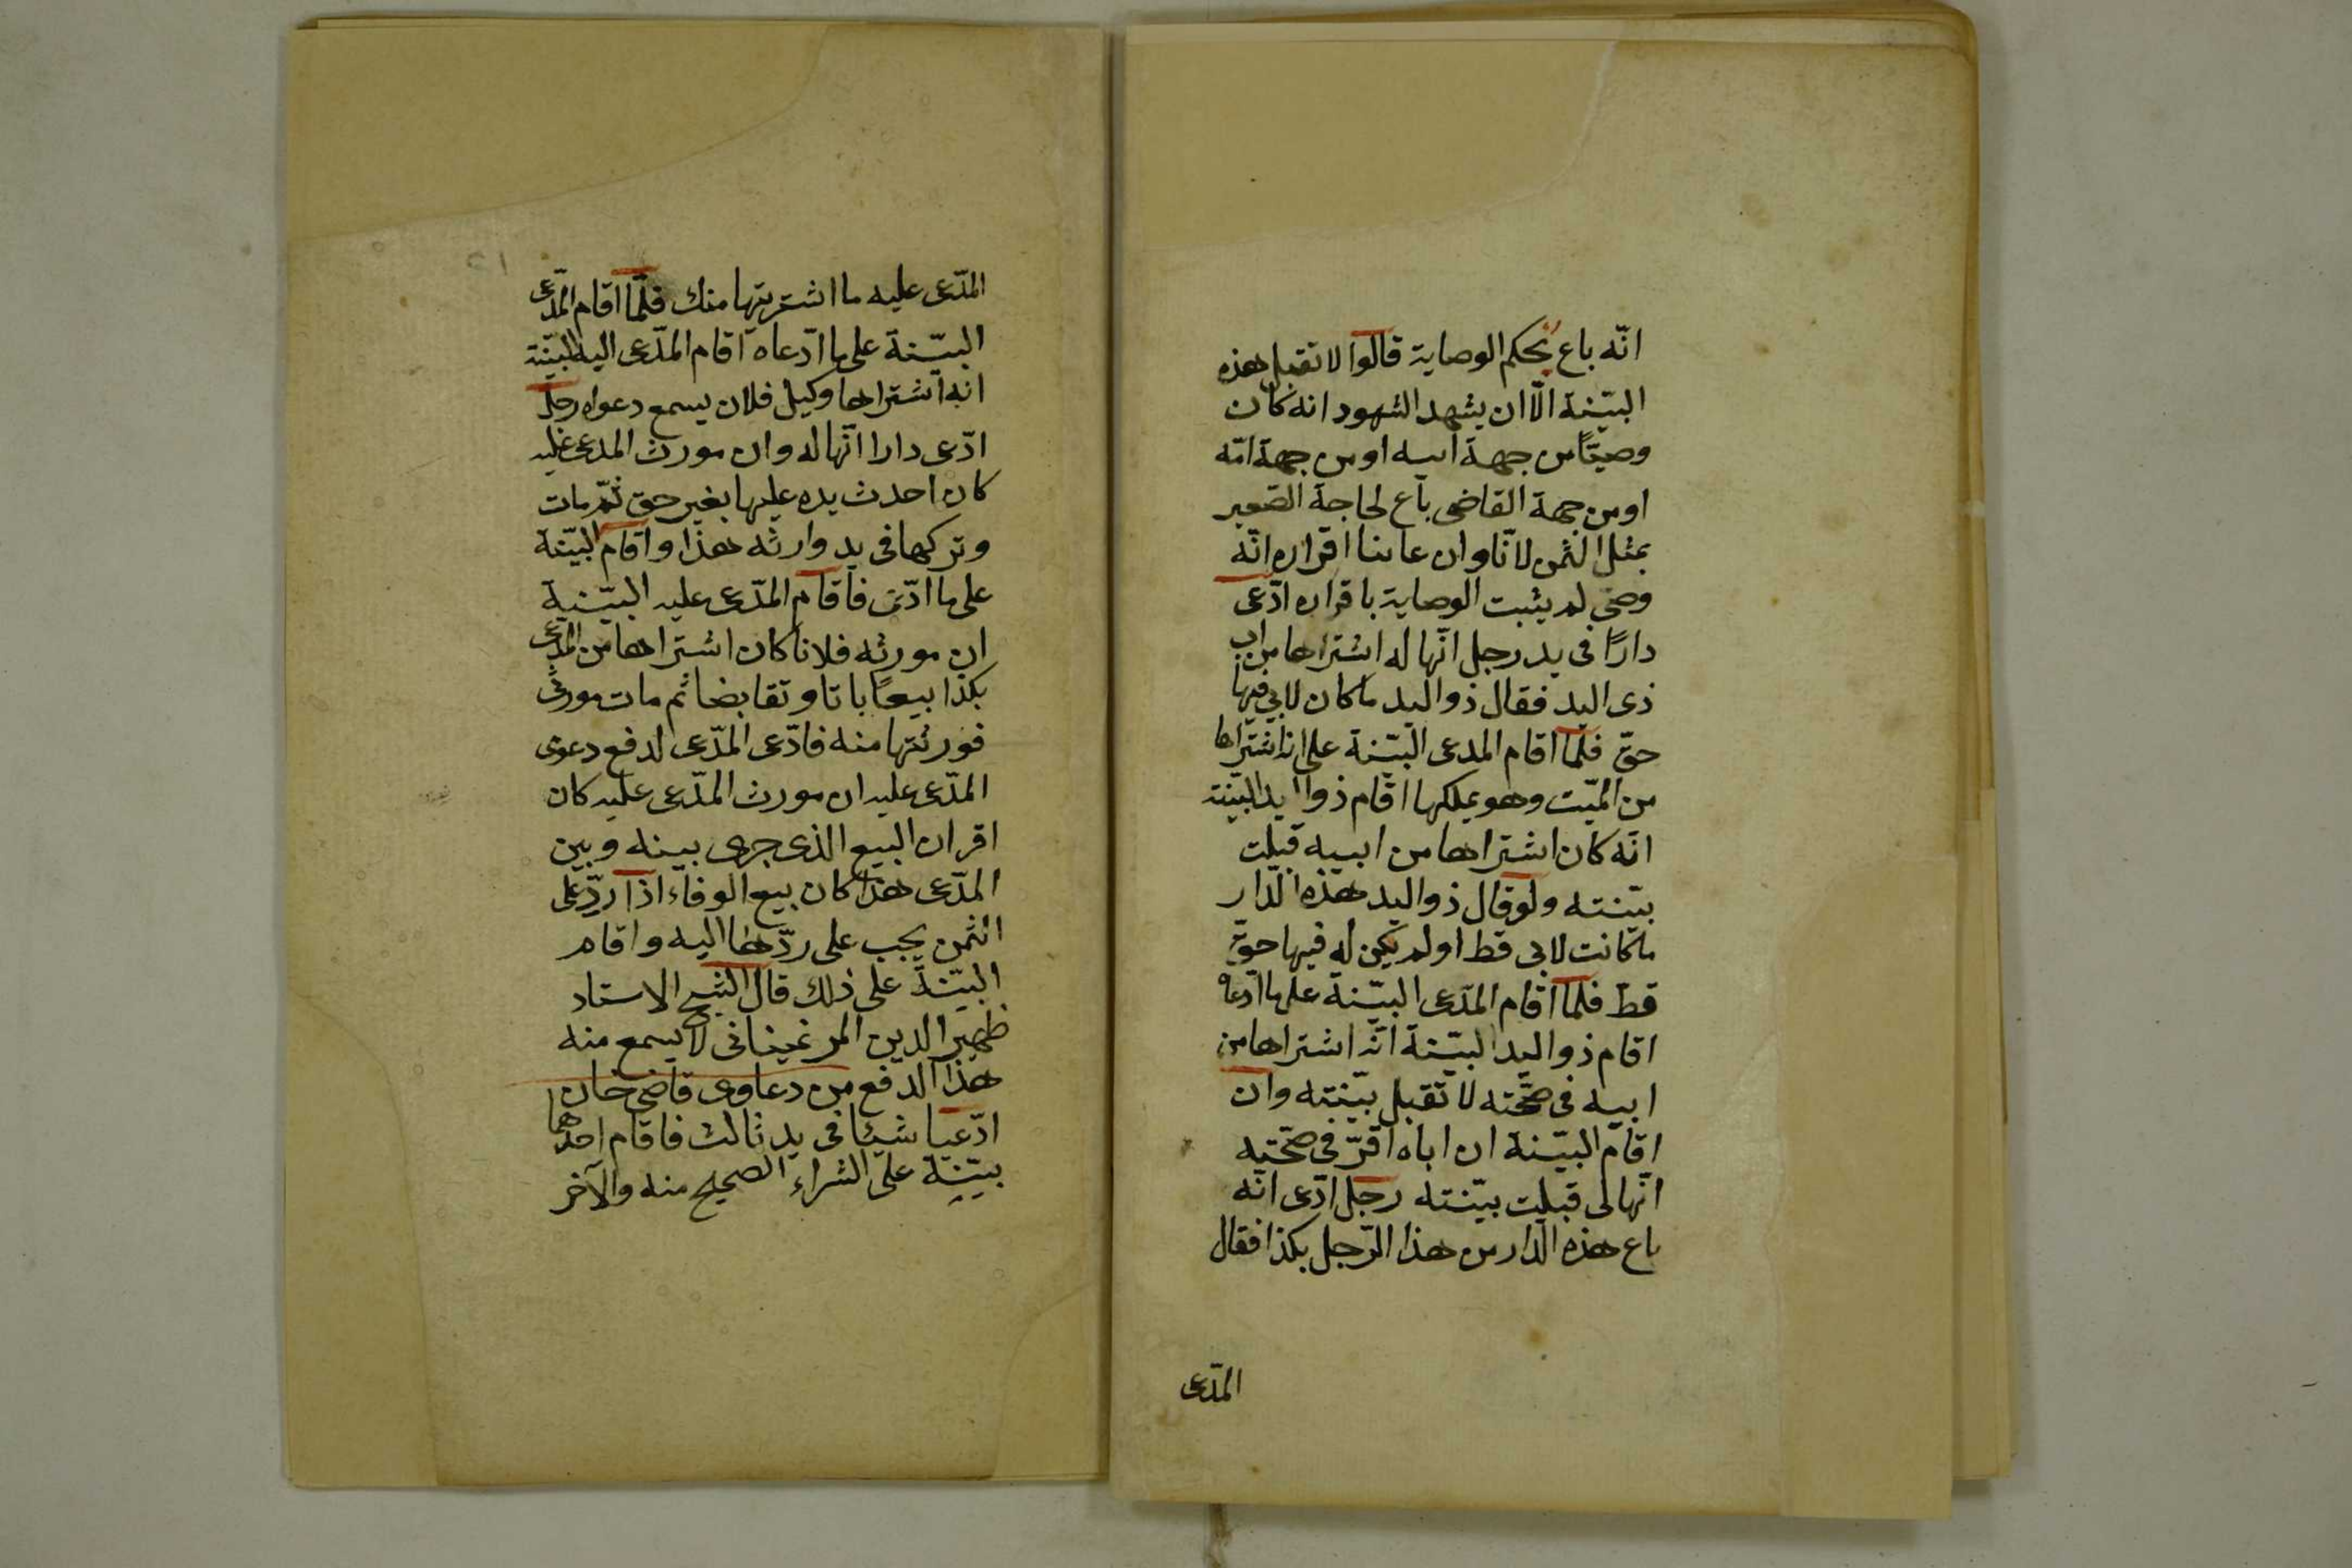 انّه باع بحكم الوصاية قالوا لا تقبل هذه
البيّنة الّا ان يشهد الشهود انه كان
وصيّاً من جهة ابيه او من جهة امّه
او من جهة القاضى باع لحاجة الصّغير
بمثل الثمن لانّا وان عاينا اقراره انّه
وصى لم يثبت الوصاية باقراره ادّعى
دارًا فى يد رجل انّها له اشتراها من اب
ذى اليد فقال ذو اليد ما كان لابى فيها
حقّ فلمّا اقام المدعى البيّنة على انه اشتراها
من الميّت وهو يملكها اقام ذو اليد البيّنة
انّه كان اشتراها من ابيه قبلت
بيّنته ولو قال ذو اليد هذه الدّار
ما كانت لابى قط او لم يكن له فيها حقّ
قط فلمّا اقام المدّعى البيّنة على ما ادّعاه
اقام ذو اليد البيّنة انّه اشتراها من
ابيه فى صحّته لا تقبل بيّنته وان
اقام البيّنة ان اباه اقرّ فى صحّته
انّها لى قبلت بيّنته رجل ادّعى انّه
باع هذه الدّار من هذا الرّجل بكذا فقال
المدّعى
المدّعى عليه ما اشتريتها منك فلمّا اقام المدّعى
البيّنة على ما ادّعاه اقام المدّعى اليه البيّنة
انه اشتراها وكيل فلان يسمع دعواه رجل
ادّعى دارا انّها له وان مورث المدعى عليه
كان احدث يده عليها بغير حق ثمّ مات
وتركها فى يد وارثه هذا واقام البيّنة
على ما ادّعى فاقام المدّعى عليه البيّنة
ان مورثه فلانا كان اشتراها من المدّعى
بكذا بيعًا باتا وتقابضا ثم مات مورثى
فورثتها منه فادّعى المدّعى لدفع دعوى
المدّعى عليه ان مورث المدّعى عليه كان
اقر ان البيع الذى جرى بينه وبين
المدّعى هذا كان بيع الوفاء اذا ردّ على
الثمن يجب على ردّها اليه واقام
البيّنة على ذلك قال الشيخ الاستاد
ظهير الدين المرغينانى لا يسمع منه
هذا الدفع من دعاوى قاضى خان
ادّعيا شيئا فى يد ثالث فاقام احدهما
بيّنة على الشراء الصحيح منه والآخر